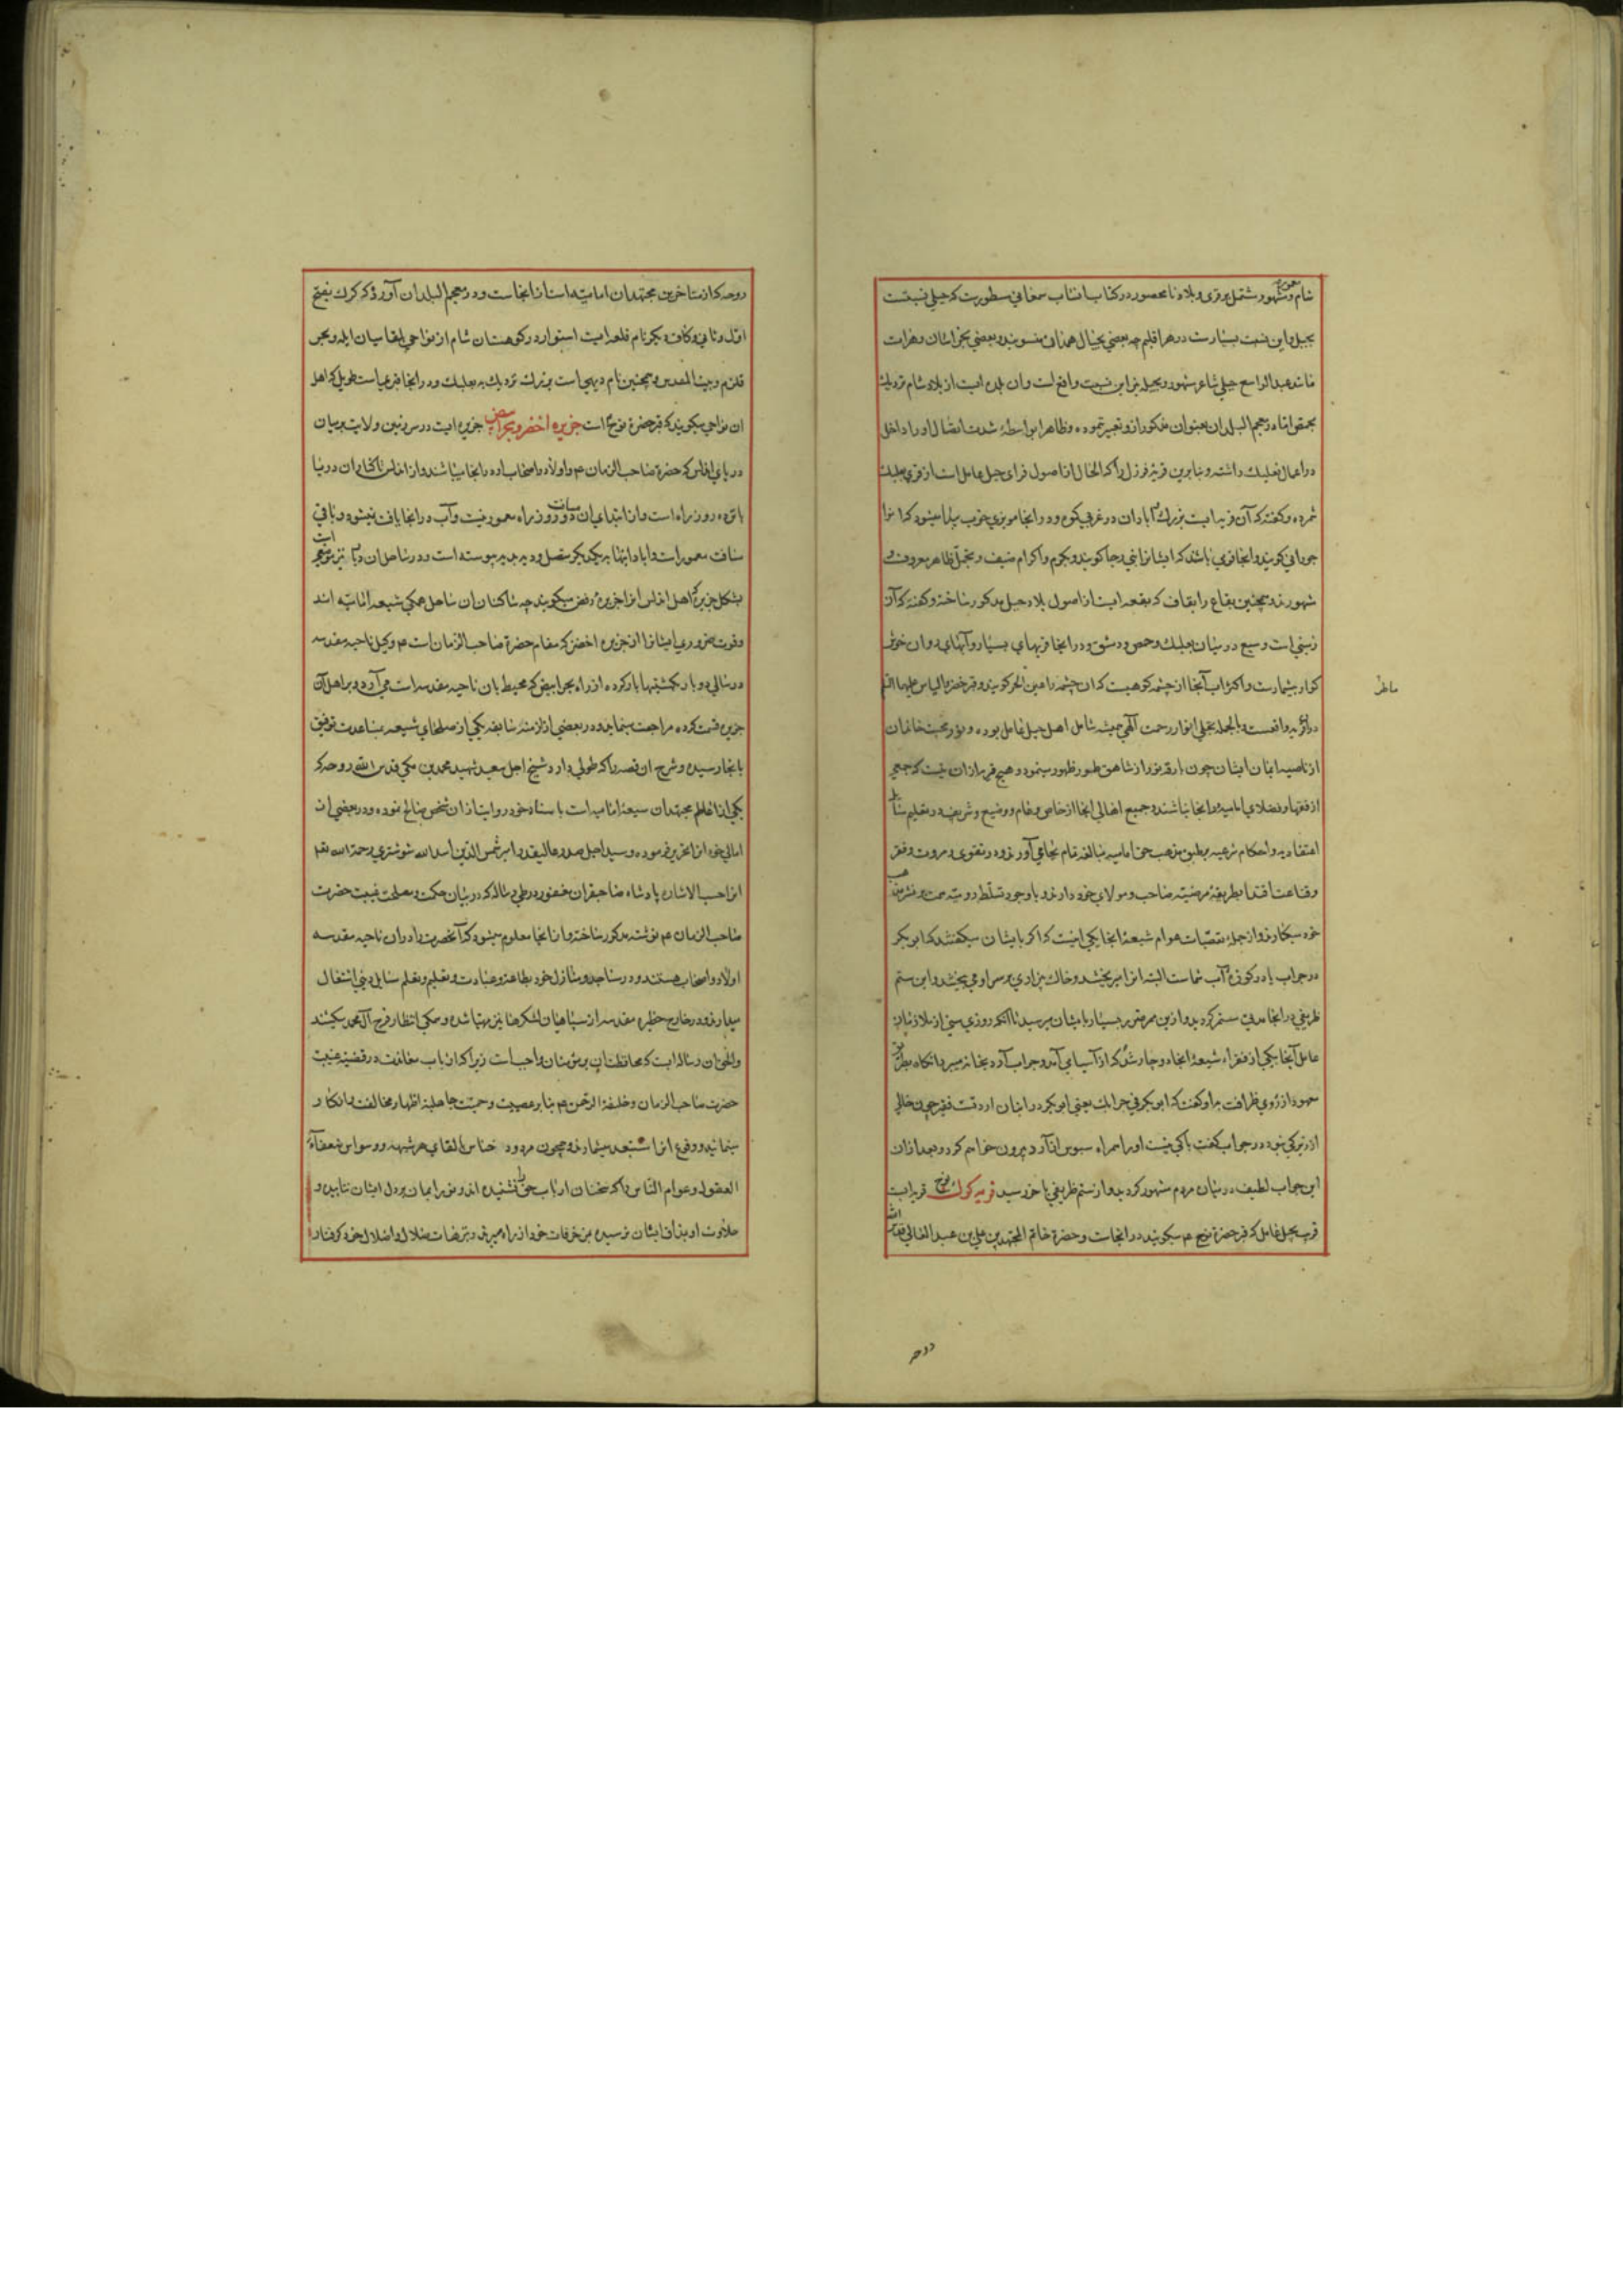 شام و مشهور مشتمل بر قری و بلاد نامحصور در کتاب انساب سمعانی مسطورست که جبلی نسبتست
بجبل و این نسبت بسیارست در هر اقلیم چه بعضی بجبال همدان منسوبند و بعضی بجبال هرات
مانند عبدالواسع جبلی شاعر مشهور و بجبله نیز این نسبت واقع است و ان بلده ایست از بلاد شام نزدیک
بحمص اما در معجم البلدان بعنوان مذکور ازو تعبیر نموده و ظاهرا بواسطهٔ شدت اتصال او را داخل
در اعمال بعلبک داشته و بنابرین قریهٔ فرزل را که الحال از اصول قرای جبل عامل است از قری بعلبک
شمرده و گفته که آن قریه ایست بزرک آبادان در غربی کوه و در انجا مویزی خوب پیدا میشود که انرا
جوزانی گویند و انجا قومی باشند که ایشانرا بنی رجا گویند و بکرم و اکرام ضیف و تجمل ظاهر معروف و
مشهورند و همچنین بقاع را بقاف که بقعه ایست از اصول بلاد جبل مذکور ساخته و گفته که آن
زمینی است وسیع در میان بعلبک و حمص و دمشق و در انجا قریهای بسیار و آبهای روان خوش
کوار بیشمارست و اکثر آب آنجا از چشمه کوهیست که ان چشمه را عین الجر گویند و قبر حضرة الیاس علیه السلم
در آن قریه واقعست و بالجمله تجلی انوار رحمت الهی همیشه شامل اهل جبل عامل بوده و نور محبت خاندان
از ناصیهٔ ایمان ایشان چون بارقهٔ نور از شاهق طور ظهور مینمود و هیچ قریه از ان نیست که جمعی
از فقها و فضلای امامیه در انجا نباشند و جمیع اهالی انجا از خاص و عام و وضیع و شریف در تعلیم مسائل
اعتقادیه و احکام شرعیه بر طبق مذهب حق امامیه مبالغه تمام بجای آورند و در تقوی و مروت و فقر
و قناعت اقتدا بطریقهٔ مرضیه صاحب و مولای خود دارند و با وجود تسلط رومیه همت بر نشر مذهب
خود میگمارند و از جمله تعصبات عوام شیعهٔ انجا یکی اینست که اگر بایشان میگفتند که ابوبکر
در جواب
ظریفی در انجا مدتی ستم گردید و از این ممر متضرر بسیار بایشان میرسید تا انکه روزی سنی از ملازمان
عامل آنجا بیکی از فقراء شیعهٔ انجا دوچار شد که از آسیا می آمد و جراب آرد بخانه میبرد انکاه بطریق
معهود از روی ظرافت با او گفت که ابوبکر فی جرابک یعنی ابوبکر در انبان آرد تست فقیر چون خالی
از زیرکی نبود در جواب گفت باکی نیست او را همراه سبوس از آرد بیرون خواهم کرد و بعد ازان
این جواب لطیف در میان مردم مشهور گردید و از ستم ظریفی باز رسید قریه کرک نوح قریه ایست
قریب بجبل عامل که قبر حضرة نوح عم میگویند در انجاست و حضرة خاتم المجتهدین علی بن عبد العالی قدس الله
روحه
ماطر
روحه که از متاخرین مجتهدان امامیه است از انجاست و در معجم البلدان آورده که کرک بفتح
اول و ثانی و کاف دیگر نام قلعه ایست استوار در کوهستان شام از نواحی بلقا میان ایله و بحر
قلزم و بیت المقدس و همچنین نام دیهی است بزرک نزدیک به بعلبک و در انجا قبریست طویل که اهل
ان نواحی میگویند که قبر حضرة نوح است جزیره اخضر و بحر ابیض جزیره ایست در سرزمین ولایت بربریان
در دریای اندلس که حضرة صاحب الزمان عم و اولاد و اصحاب او در انجا میباشند و از اندلس تا کنار ان دریا
پانزده روز راه است و از ابتدای ان مسافت دو روز راه معمور نیست و آب در انجا یافت نمیشود و باقی
مسافت معمور است و ابادانیها بیکدیگر متصل و دیه بدیه پیوسته است و در ساحل ان دریا نیز موضعی است
بشکل جزیره که اهل اندلس انرا جزیرهٔ رفض میگویند چه ساکنان ان ساحل همکی شیعهٔ امامیه اند
و قوت ضروری ایشانرا از جزیره اخضر که مقام حضرة صاحب الزمان است عم وکیل ناحیهٔ مقدسه
در سالی دو بار بکشتیها بار کرده از راه بحر ابیض که محیط بان ناحیه مقدسه است می آرد و بر اهل آن
جزیره قسمت کرده مراجعت مینماید و در بعضی از ازمنهٔ سابقه یکی از صلحای شیعه بمساعدت توفیق
بانجا رسیده و شرح ان قصه را که طولی دارد شیخ اجل سعید شهید محمد بن مکی قدس الله روحه که
یکی از اعاظم مجتهدان شیعهٔ امامیه است باسناد خود روایت از ان شخص صالح نموده و در بعضی از
امالی خود انرا تحریر فرموده و سید اجل صدر عالیقدر امیر شمس الدین اسد الله شوشتری رحمة الله علیه
انرا حسب الاشاره پادشاه صاحبقران مغفور در طی رساله که در بیان حکمت و مصلحت غیبت حضرت
صاحب الزمان عم نوشته مذکور ساخته و از انجا معلوم میشود که آنحضرت را در ان ناحیه مقدسه
اولاد و اصحاب هستند و در مساجد و منازل خود بطاعت و عبادت و تعلیم و تعلم مسایل دینی اشتغال
میدارند و در خارج حظیره مقدسه از سپاهیان لشکرها نیز مهیا شده و همکی انتظار فرج آل محمد میکشند
والحق ان رساله ایست که محافظت ان بر مؤمنان واجبست زیرا که ارباب مخالفت در قضیهٔ غیبت
حضرت صاحب الزمان و خلیفة الرحمن عم بنابر عصبیت و حمیت جاهلیة اظهار مخالفت و انکار
مینمایند و وقوع انرا مستبعد میشمارند و همچون مردود خناس بالقای هر شبهه و وسواس ضعفاء
العقول و عوام الناس را که سخنان ارباب حق را نشنیده اند و نور ایمان بر دل ایشان نتابیده و
حلاوت او بمذاق ایشان نرسیده بزخرفات خود از راه میبرند و بترهات ضلال و اضلال خود گرفتار